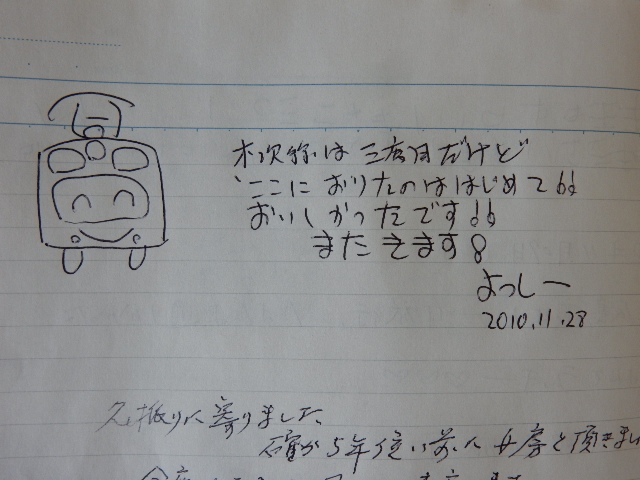 木次線は三度目だけど
ここにおりたのははじめて!!
おいしかったです!!
またきます!
よっしー
2010.11.28
久振りに寄りました
確か5年位い前に女房と頂きまし